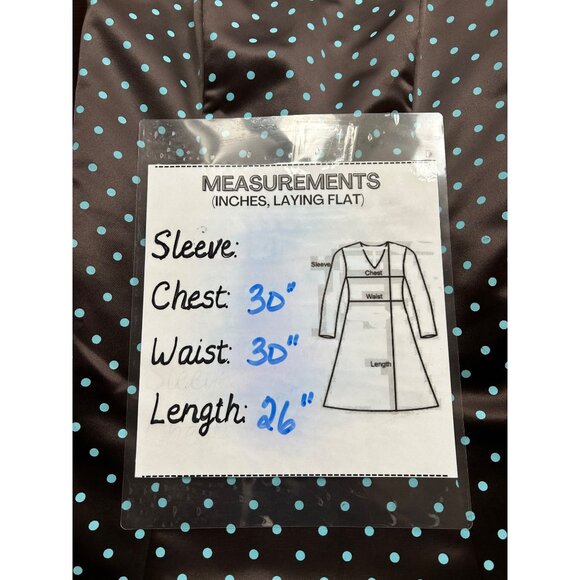 MEASUREMENTS
(INCHES, LAYING FLAT)
Sleeve:
Chest: 30"
Waist: 30"
Length: 26"
Sleeve
Chest
Waist
Length